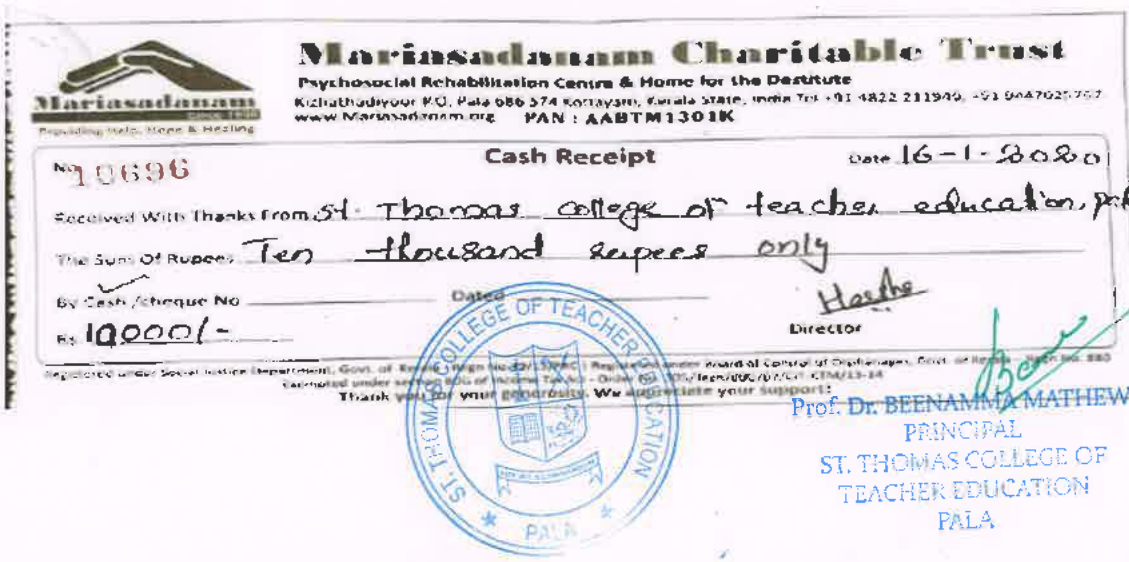 Mariasadanam Charitable Trust
Psychosocial Rehabilitation Centre & Home for the Destitute
Mariasadanam
Since 1998
Providing Help, Hope & Healing
Kizhathadiyoor P.O, Pala 686 574 Kottayam, Kerala State, India Tel +91 4822 211949, +91 9447025767
www.Mariasadanam.org PAN : AABTM1301K
No 10696
Cash Receipt
Date 16-1-2020
Received With Thanks From St. Thomas college of teacher education,
The Sum Of Rupees Ten thousand rupees only
By Cash /cheque No Dated
Rs 10000/-
Director
Registered under Social Justice Department, Govt. of Registered under Board of Control of Orphanages, Govt. of Kerala
Exempted under section 80G of Income
Thank you for your generosity. We appreciate your support!
ST. THOMAS COLLEGE OF TEACHER EDUCATION
PALA
Prof. Dr. BEENAMMA MATHEW
PRINCIPAL
ST. THOMAS COLLEGE OF
TEACHER EDUCATION
PALA